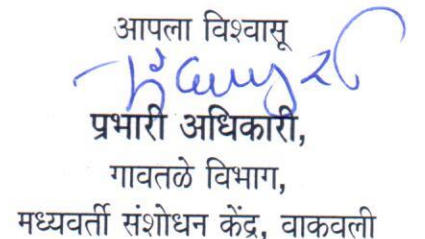 आपला विश्वासू
प्रभारी अधिकारी,
गावतळे विभाग,
मध्यवर्ती संशोधन केंद्र, वाकवली